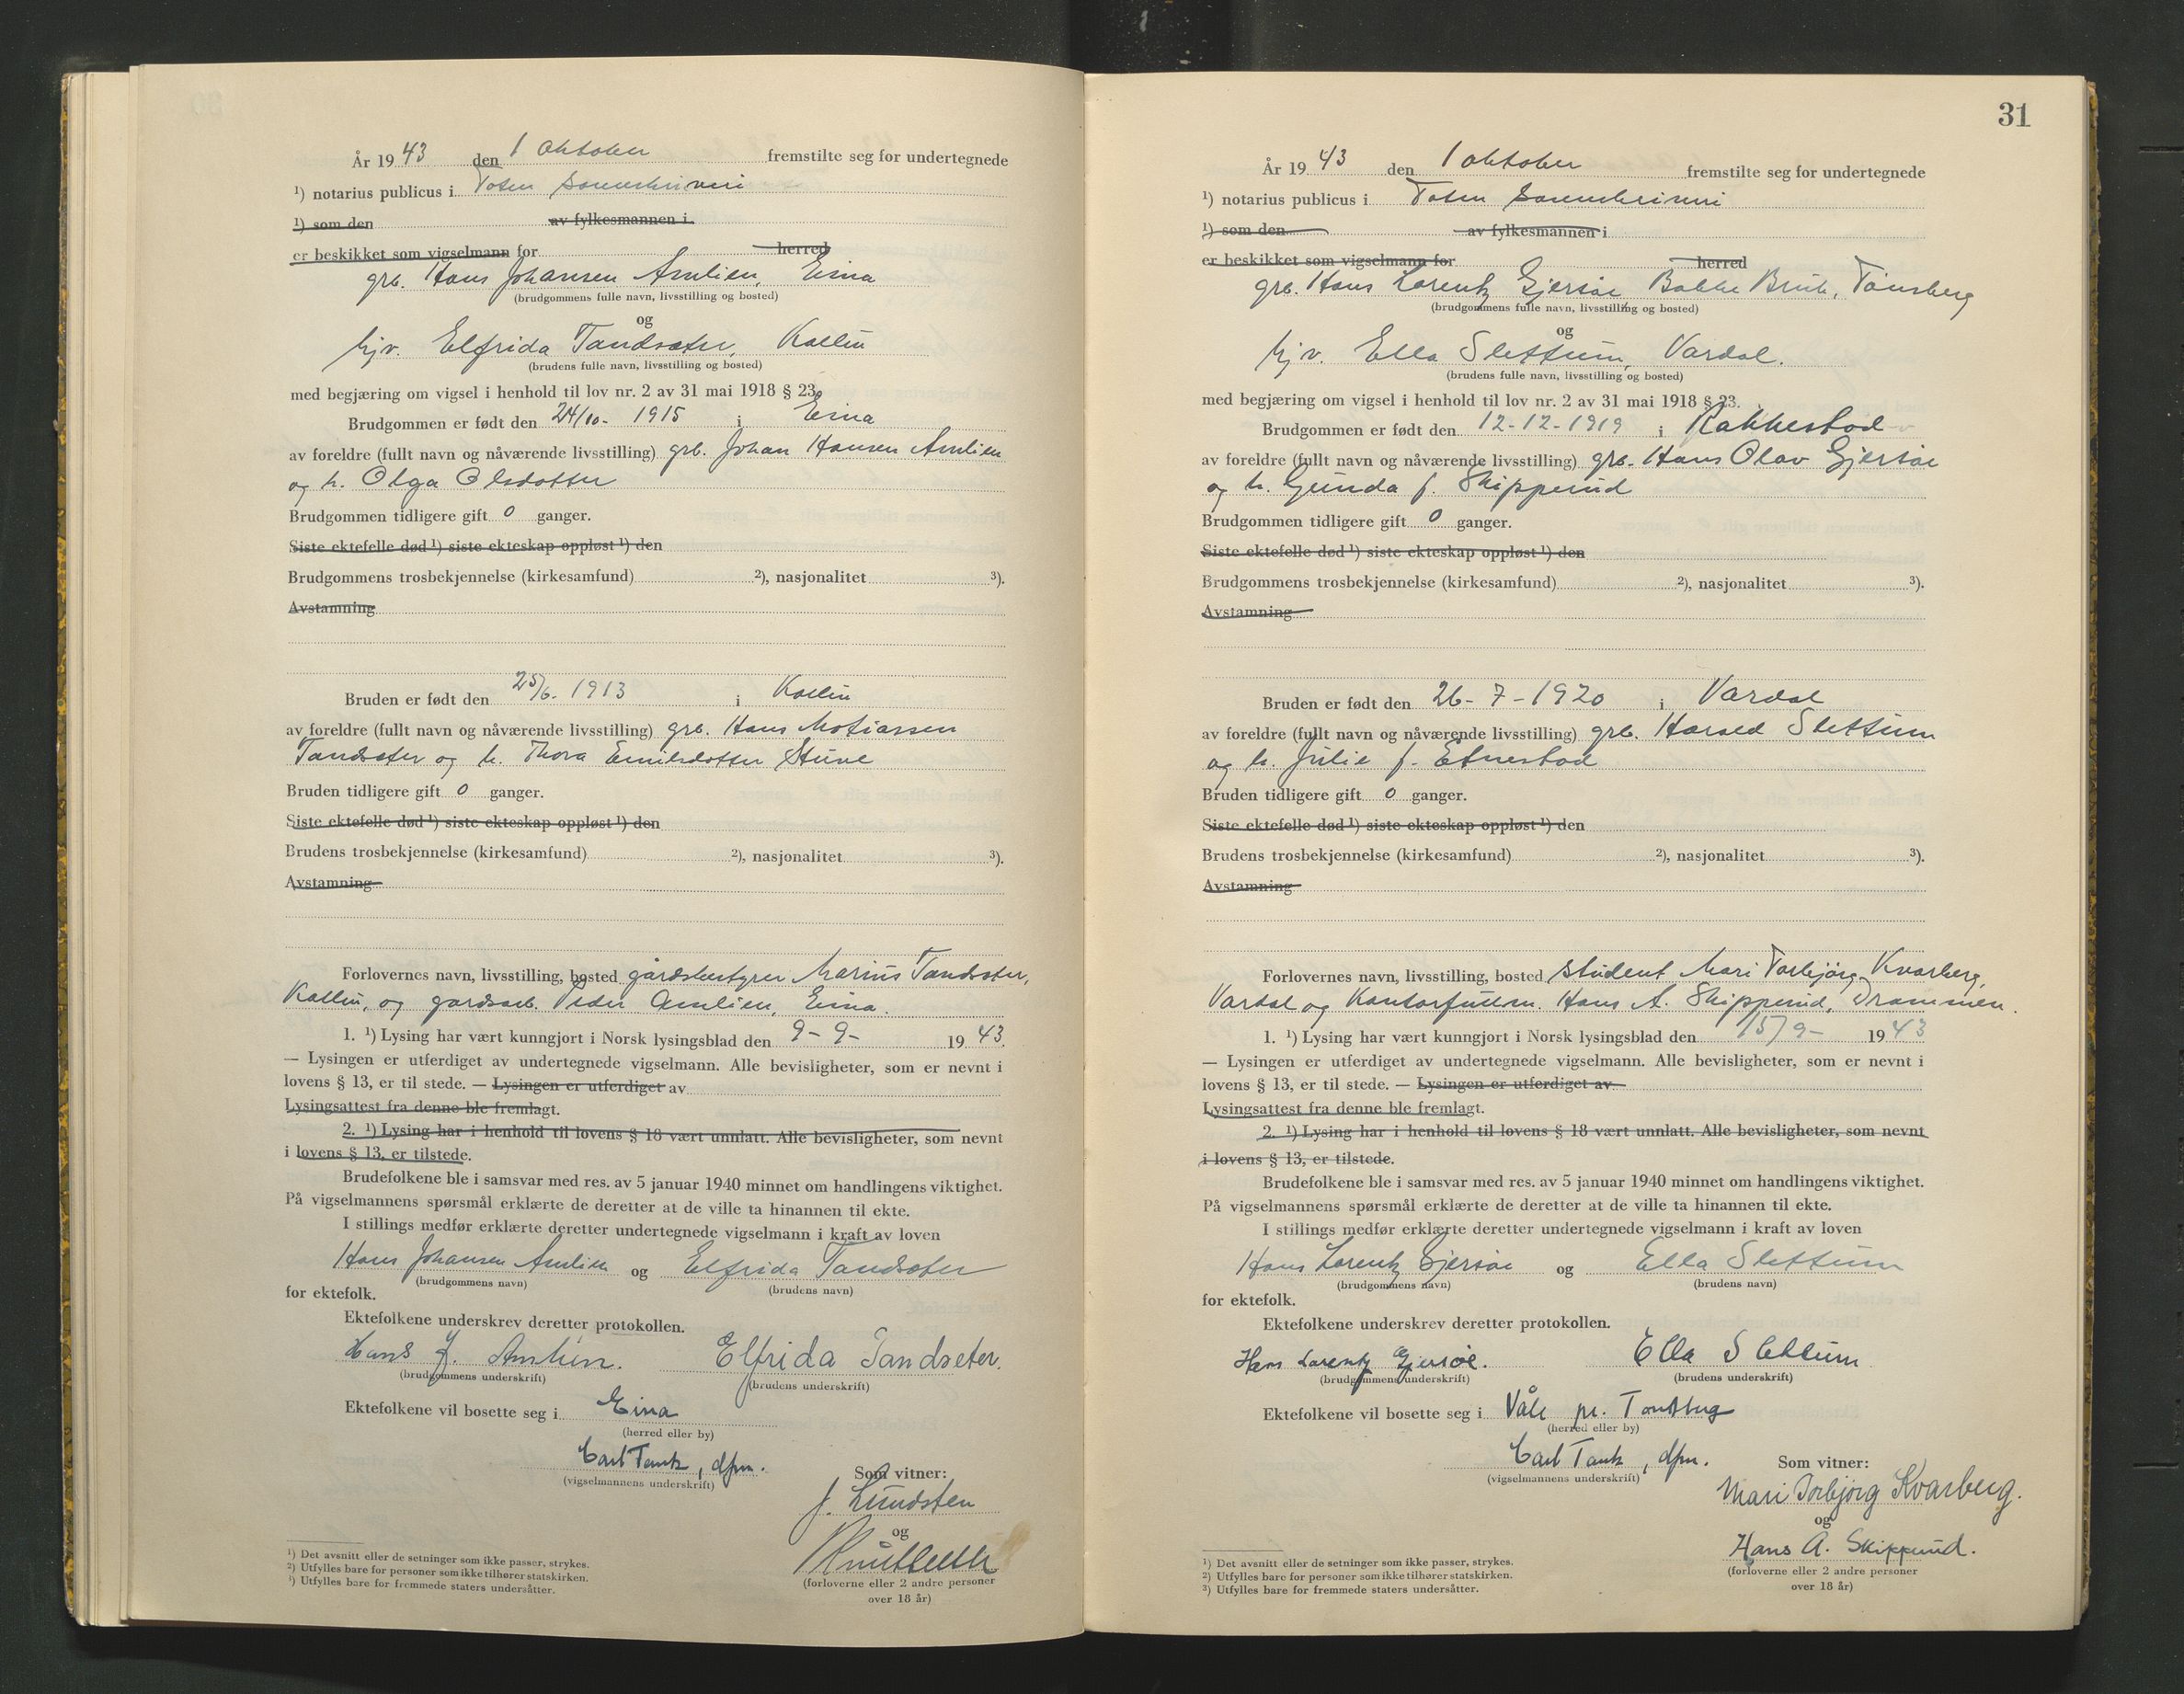 År 1943 den 1 Oktober fremstilte seg for undertegnede
¹) notarius publicus i Toten Sorenskriveri
¹) som den av fylkesmannen i
er beskikket som vigselmann for herred
grb. Hans Johansen Amlien, Eina
(brudgommens fulle navn, livsstilling og bosted)
og
hjv. Elfrida Tandsæter, Kolbu
(brudens fulle navn, livsstilling og bosted)
med begjæring om vigsel i henhold til lov nr. 2 av 31 mai 1918 § 23.
Brudgommen er født den 24/10- 1915 i Eina
av foreldre (fullt navn og nåværende livsstilling) grb. Johan Hansen Amlien
og h. Olga Olsdotter
Brudgommen tidligere gift 0 ganger.
Siste ektefelle død ¹) siste ekteskap oppløst ¹) den
Brudgommens trosbekjennelse (kirkesamfund) ²), nasjonalitet ³).
Avstamning
Bruden er født den 25/6. 1913 i Kolbu
av foreldre (fullt navn og nåværende livsstilling) grb. Hans Matiassen
Tandsæter og h. Thora Emilsdotter Stuve
Bruden tidligere gift 0 ganger.
Siste ektefelle død ¹) siste ekteskap oppløst ¹) den
Brudens trosbekjennelse (kirkesamfund) ²), nasjonalitet ³).
Avstamning
Forlovernes navn, livsstilling, bosted gårdsbestyrer Marius Tandsæter,
Kolbu, og gardsarb. Peder Amlien, Eina.
1. ¹) Lysing har vært kunngjort i Norsk lysingsblad den 9-9- 1943.
— Lysingen er utferdiget av undertegnede vigselmann. Alle bevisligheter, som er nevnt i
lovens § 13, er til stede. — Lysingen er utferdiget av
Lysingsattest fra denne ble fremlagt.
2. ¹) Lysing har i henhold til lovens § 18 vært unnlatt. Alle bevisligheter, som nevnt
i lovens § 13, er tilstede.
Brudefolkene ble i samsvar med res. av 5 januar 1940 minnet om handlingens viktighet.
På vigselmannens spørsmål erklærte de deretter at de ville ta hinannen til ekte.
I stillings medfør erklærte deretter undertegnede vigselmann i kraft av loven
Hans Johansen Amlien og Elfrida Tandsæter
(brudgommens navn) (brudens navn)
for ektefolk.
Ektefolkene underskrev deretter protokollen.
Hans J. Amlien. Elfrida Tandseter.
(brudgommens underskrift) (brudens underskrift)
Ektefolkene vil bosette seg i Eina
(herred eller by)
Carl Tank, dfm.
(vigselmannens underskrift)
Som vitner:
J. Lundsten
og
(forloverne eller 2 andre personer
over 18 år)
¹) Det avsnitt eller de setninger som ikke passer, strykes.
²) Utfylles bare for personer som ikke tilhører statskirken.
³) Utfylles bare for fremmede staters undersåtter.
31
År 1943 den 1 oktober fremstilte seg for undertegnede
¹) notarius publicus i Toten Sorenskriveri
¹) som den av fylkesmannen i
er beskikket som vigselmann for herred
grb. Hans Lorentz Gjersøe Bakke Bruk, Tønsberg
(brudgommens fulle navn, livsstilling og bosted)
og
hjv. Ella Slettum, Vardal.
(brudens fulle navn, livsstilling og bosted)
med begjæring om vigsel i henhold til lov nr. 2 av 31 mai 1918 § 23.
Brudgommen er født den 12-12-1919 i Rakkestad
av foreldre (fullt navn og nåværende livsstilling) grb. Hans Olav Gjersøe
og h. Gunda f. Skipperud
Brudgommen tidligere gift 0 ganger.
Siste ektefelle død ¹) siste ekteskap oppløst ¹) den
Brudgommens trosbekjennelse (kirkesamfund) ²), nasjonalitet ³).
Avstamning
Bruden er født den 26-7-1920 i Vardal
av foreldre (fullt navn og nåværende livsstilling) grb. Harald Slettum
og h. Julie f. Etnestad
Bruden tidligere gift 0 ganger.
Siste ektefelle død ¹) siste ekteskap oppløst ¹) den
Brudens trosbekjennelse (kirkesamfund) ²), nasjonalitet ³).
Avstamning
Forlovernes navn, livsstilling, bosted student Mari Torbjörg Kvarberg,
Vardal og Kontorfullm. Hans A. Skipperud, Drammen.
1. ¹) Lysing har vært kunngjort i Norsk lysingsblad den 15/9- 1943
— Lysingen er utferdiget av undertegnede vigselmann. Alle bevisligheter, som er nevnt i
lovens § 13, er til stede. — Lysingen er utferdiget av
Lysingsattest fra denne ble fremlagt.
2. ¹) Lysing har i henhold til lovens § 18 vært unnlatt. Alle bevisligheter, som nevnt
i lovens § 13, er tilstede.
Brudefolkene ble i samsvar med res. av 5 januar 1940 minnet om handlingens viktighet.
På vigselmannens spørsmål erklærte de deretter at de ville ta hinannen til ekte.
I stillings medfør erklærte deretter undertegnede vigselmann i kraft av loven
Hans Lorentz Gjersøe og Ella Slettum
(brudgommens navn) (brudens navn)
for ektefolk.
Ektefolkene underskrev deretter protokollen.
Hans Lorentz Gjersøe. Ella Slettum
(brudgommens underskrift) (brudens underskrift)
Ektefolkene vil bosette seg i Våle pr. Tønsberg
(herred eller by)
Carl Tank, dfm.
(vigselmannens underskrift)
Som vitner:
Mari Torbjörg Kvarberg.
og
Hans A. Skipperud.
(forloverne eller 2 andre personer
over 18 år)
¹) Det avsnitt eller de setninger som ikke passer, strykes.
²) Utfylles bare for personer som ikke tilhører statskirken.
³) Utfylles bare for fremmede staters undersåtter.